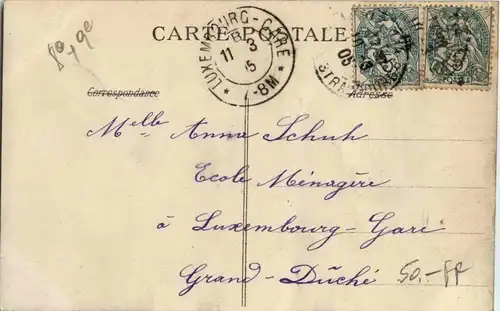 80, 9e
CARTE POSTALE
LUXEMBOURG-GARE
11 3
5
7-8M
Correspondance
Adresse
Melle Anna Schuh
Ecole Ménagère
à Luxembourg-Gare
Grand-Duché
50.- FF